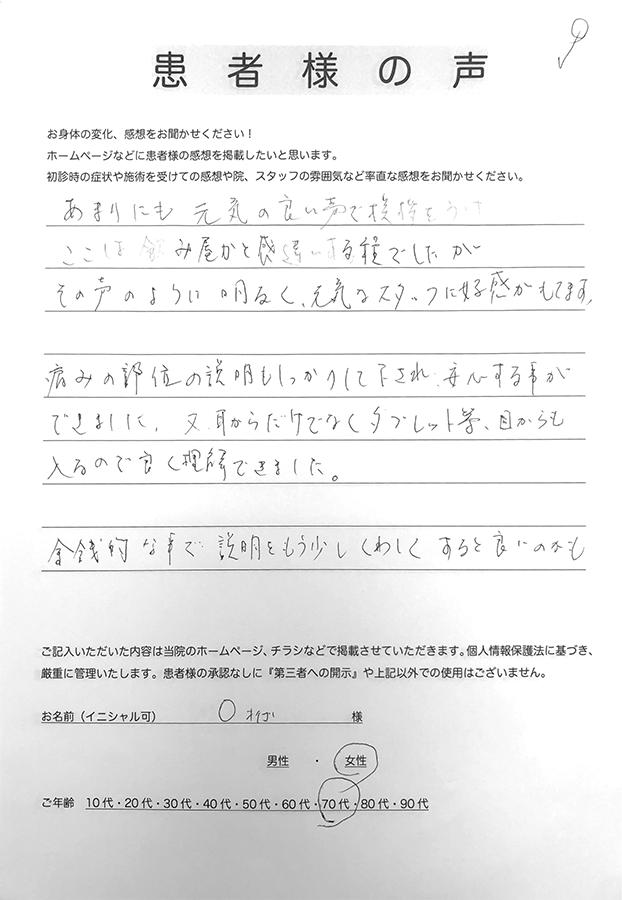 患者様の声
お身体の変化、感想をお聞かせください！
ホームページなどに患者様の感想を掲載したいと思います。
初診時の症状や施術を受けての感想や院、スタッフの雰囲気など率直な感想をお聞かせください。
あまりにも 元気の良い声で挨拶をうけ
ここは飲み屋かと感違いする程でしたが
その声のように明るく、元気なスタッフに好感がもてます。
痛みの部位の説明もしっかりして下され、安心する事が
できました。又、耳からだけでなくタブレット等、目からも
入るので良く理解できました。
金銭的な事で説明をもう少しくわしくすると良いのかも
ご記入いただいた内容は当院のホームページ、チラシなどで掲載させていただきます。個人情報保護法に基づき、
厳重に管理いたします。患者様の承認なしに『第三者への開示』や上記以外での使用はございません。
お名前（イニシャル可） O 様
男性 ・ 女性
ご年齢 10代・20代・30代・40代・50代・60代・70代・80代・90代